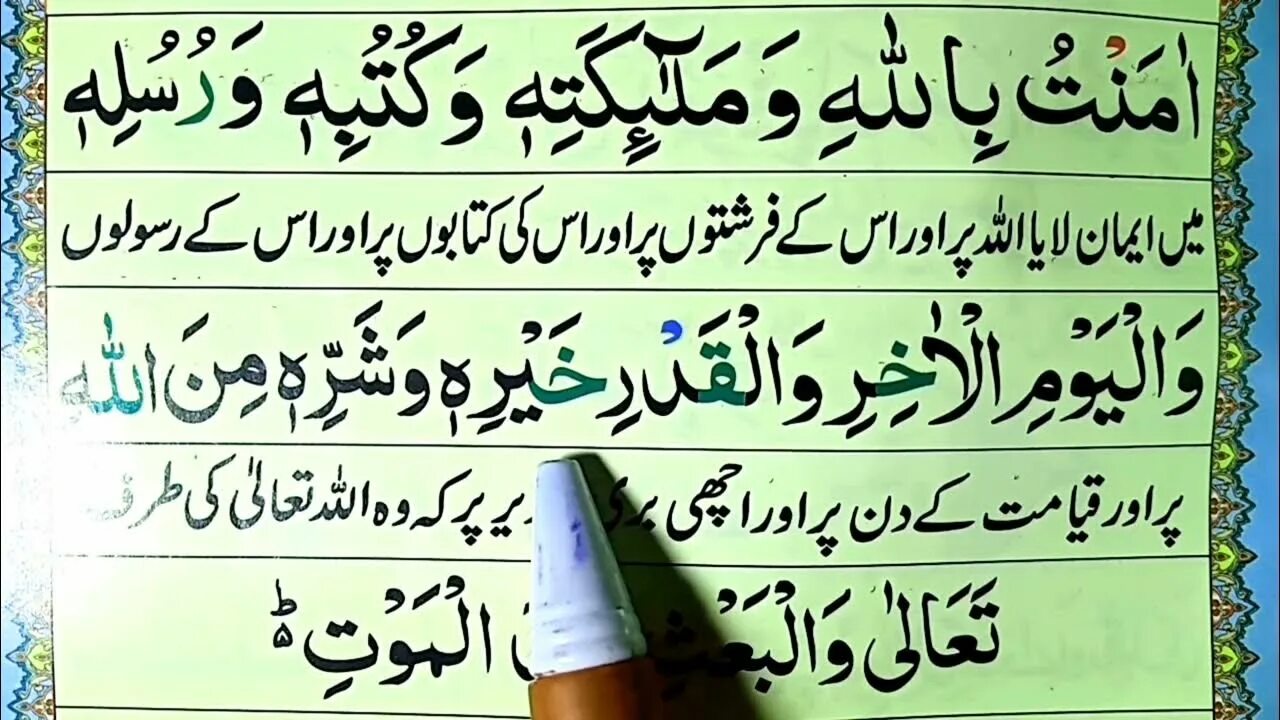 اٰمَنْتُ بِاللّٰهِ وَمَلٰٓئِكَتِهٖ وَكُتُبِهٖ وَرُسُلِهٖ
میں ایمان لایا اللہ پر اور اس کے فرشتوں پر اور اس کی کتابوں پر اور اس کے رسولوں
وَالْيَوْمِ الْاٰخِرِ وَالْقَدْرِ خَيْرِهٖ وَشَرِّهٖ مِنَ اللّٰهِ
پر اور قیامت کے دن پر اور اچھی بری پر کہ وہ اللہ تعالیٰ کی طرف
تَعَالٰى وَالْبَعْثِ الْمَوْتِ ؕ